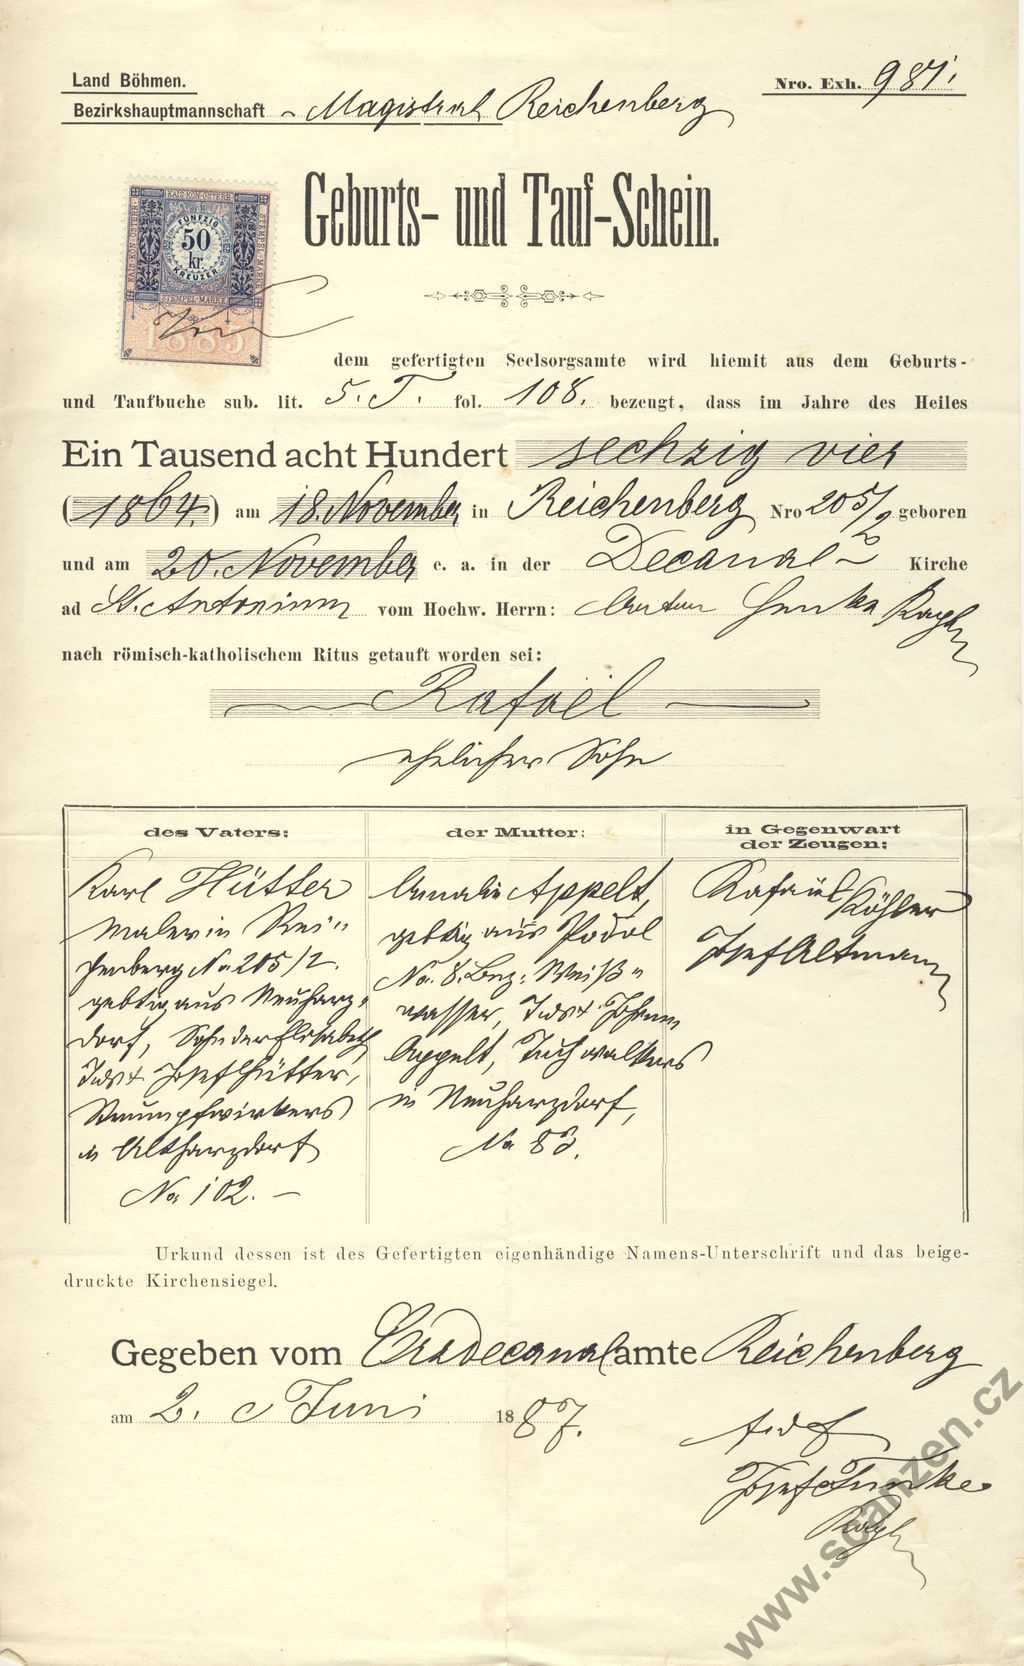 Land Böhmen.
Nro. Exh. 981.
Bezirkshauptmannschaft Magistrat Reichenberg
Geburts- und Tauf-Schein.
KAIS. KÖN. ÖSTERR.
STEMPEL-MARKE
FÜNFZIG
50
kr.
KREUZER
STEMPEL-MARKE
1885
Von
dem gefertigten Seelsorgsamte wird hiemit aus dem Geburts-
und Taufbuche sub. lit. 5. T. fol. 108. bezeugt, dass im Jahre des Heiles
Ein Tausend acht Hundert sechzig vier
(1864.) am 18. November in Reichenberg Nro 205/2 geboren
und am 20. November e. a. in der Decanal- Kirche
ad St. Antonium vom Hochw. Herrn: Anton Kapl
nach römisch-katholischem Ritus getauft worden sei:
Rafael
ehelicher Sohn
des Vaters:
Karl Hütter
Maler in Rei"
chenberg No. 205/2.
gebtig aus Neuharz"
dorf, Sohn der Elisabeth
und des Josef Hütter,
Strumpfwirkers
in Altharzdorf
No. 102. -
der Mutter:
Amalie Appelt,
gebtig aus Podol
No. 8. Bez: Weiß"
wasser, Johann
Appelt, Tuchwalkers
in Neuharzdorf,
No 83.
in Gegenwart
der Zeugen:
Rafael Köhler
Josef Altmann
Urkund dessen ist des Gefertigten eigenhändige Namens-Unterschrift und das beige-
druckte Kirchensiegel.
Gegeben vom Erzdecanalamte Reichenberg
am 2. Juni 1887.
Josef Funke
Kapl
www.scanzen.cz